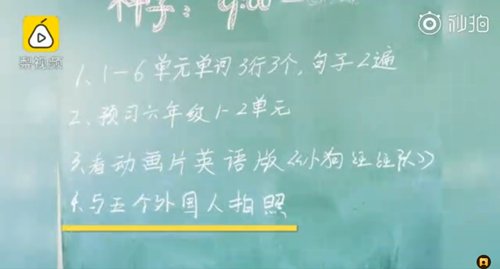 梨视频
秒拍
1、1-6单元单词3行3个,句子2遍
2、预习六年级1-2单元
3、看动画片英语版《小狗汪汪队》
4、与五个外国人拍照